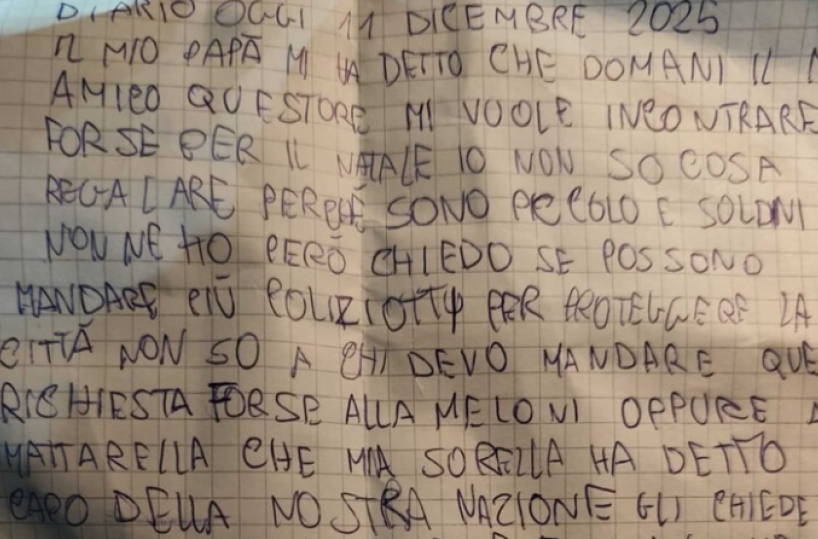 DIARIO OGGI 11 DICEMBRE 2025
IL MIO PAPÀ MI HA DETTO CHE DOMANI IL
AMICO QUESTORE MI VUOLE INCONTRARE
FORSE PER IL NATALE IO NON SO COSA
REGALARE PERCHÈ SONO PICCOLO E SOLDNI
NON NE HO PERÒ CHIEDO SE POSSONO
MANDARE PIÙ POLIZIOTTI PER PROTEGGERE LA
CITTÀ NON SO A CHI DEVO MANDARE QUE
RICHIESTA FORSE ALLA MELONI OPPURE
MATTARELLA CHE MIA SORELLA HA DETTO
CAPO DELLA NOSTRA NAZIONE GLI CHIEDE